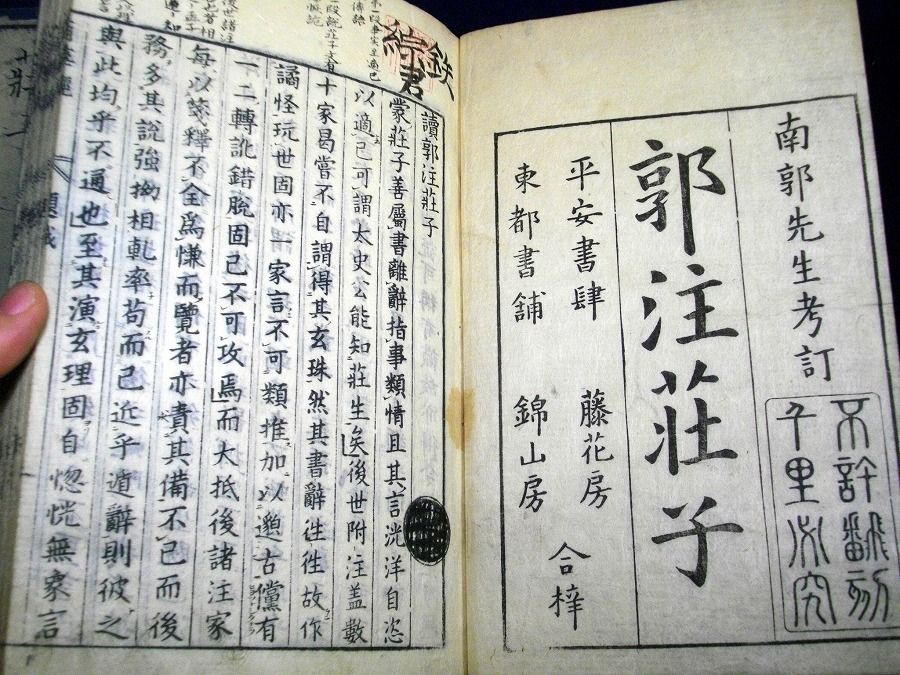 南郭先生考訂
不許翻刻
千里必究
郭注莊子
平安書肆 藤花房
東都書舖 錦山房
合梓
讀郭注莊子
蒙莊子善屬書離辭指事類情且其言洸洋自恣
以適己可謂太史公能知莊生矣後世附注盖數
十家曷嘗不自謂得其玄珠然其書辭徃徃故作
譎怪玩世固亦一家言不可類推加以邈古儻有
一二轉訛錯脫固已不可攻焉而大抵後諸注家
每以箋釋不全爲慊而覽者亦責其備不已而後
務多其說強拗相軋率苟而已近乎遁辭則彼之
與此均乎不通也至其演玄理固自惚恍無象言